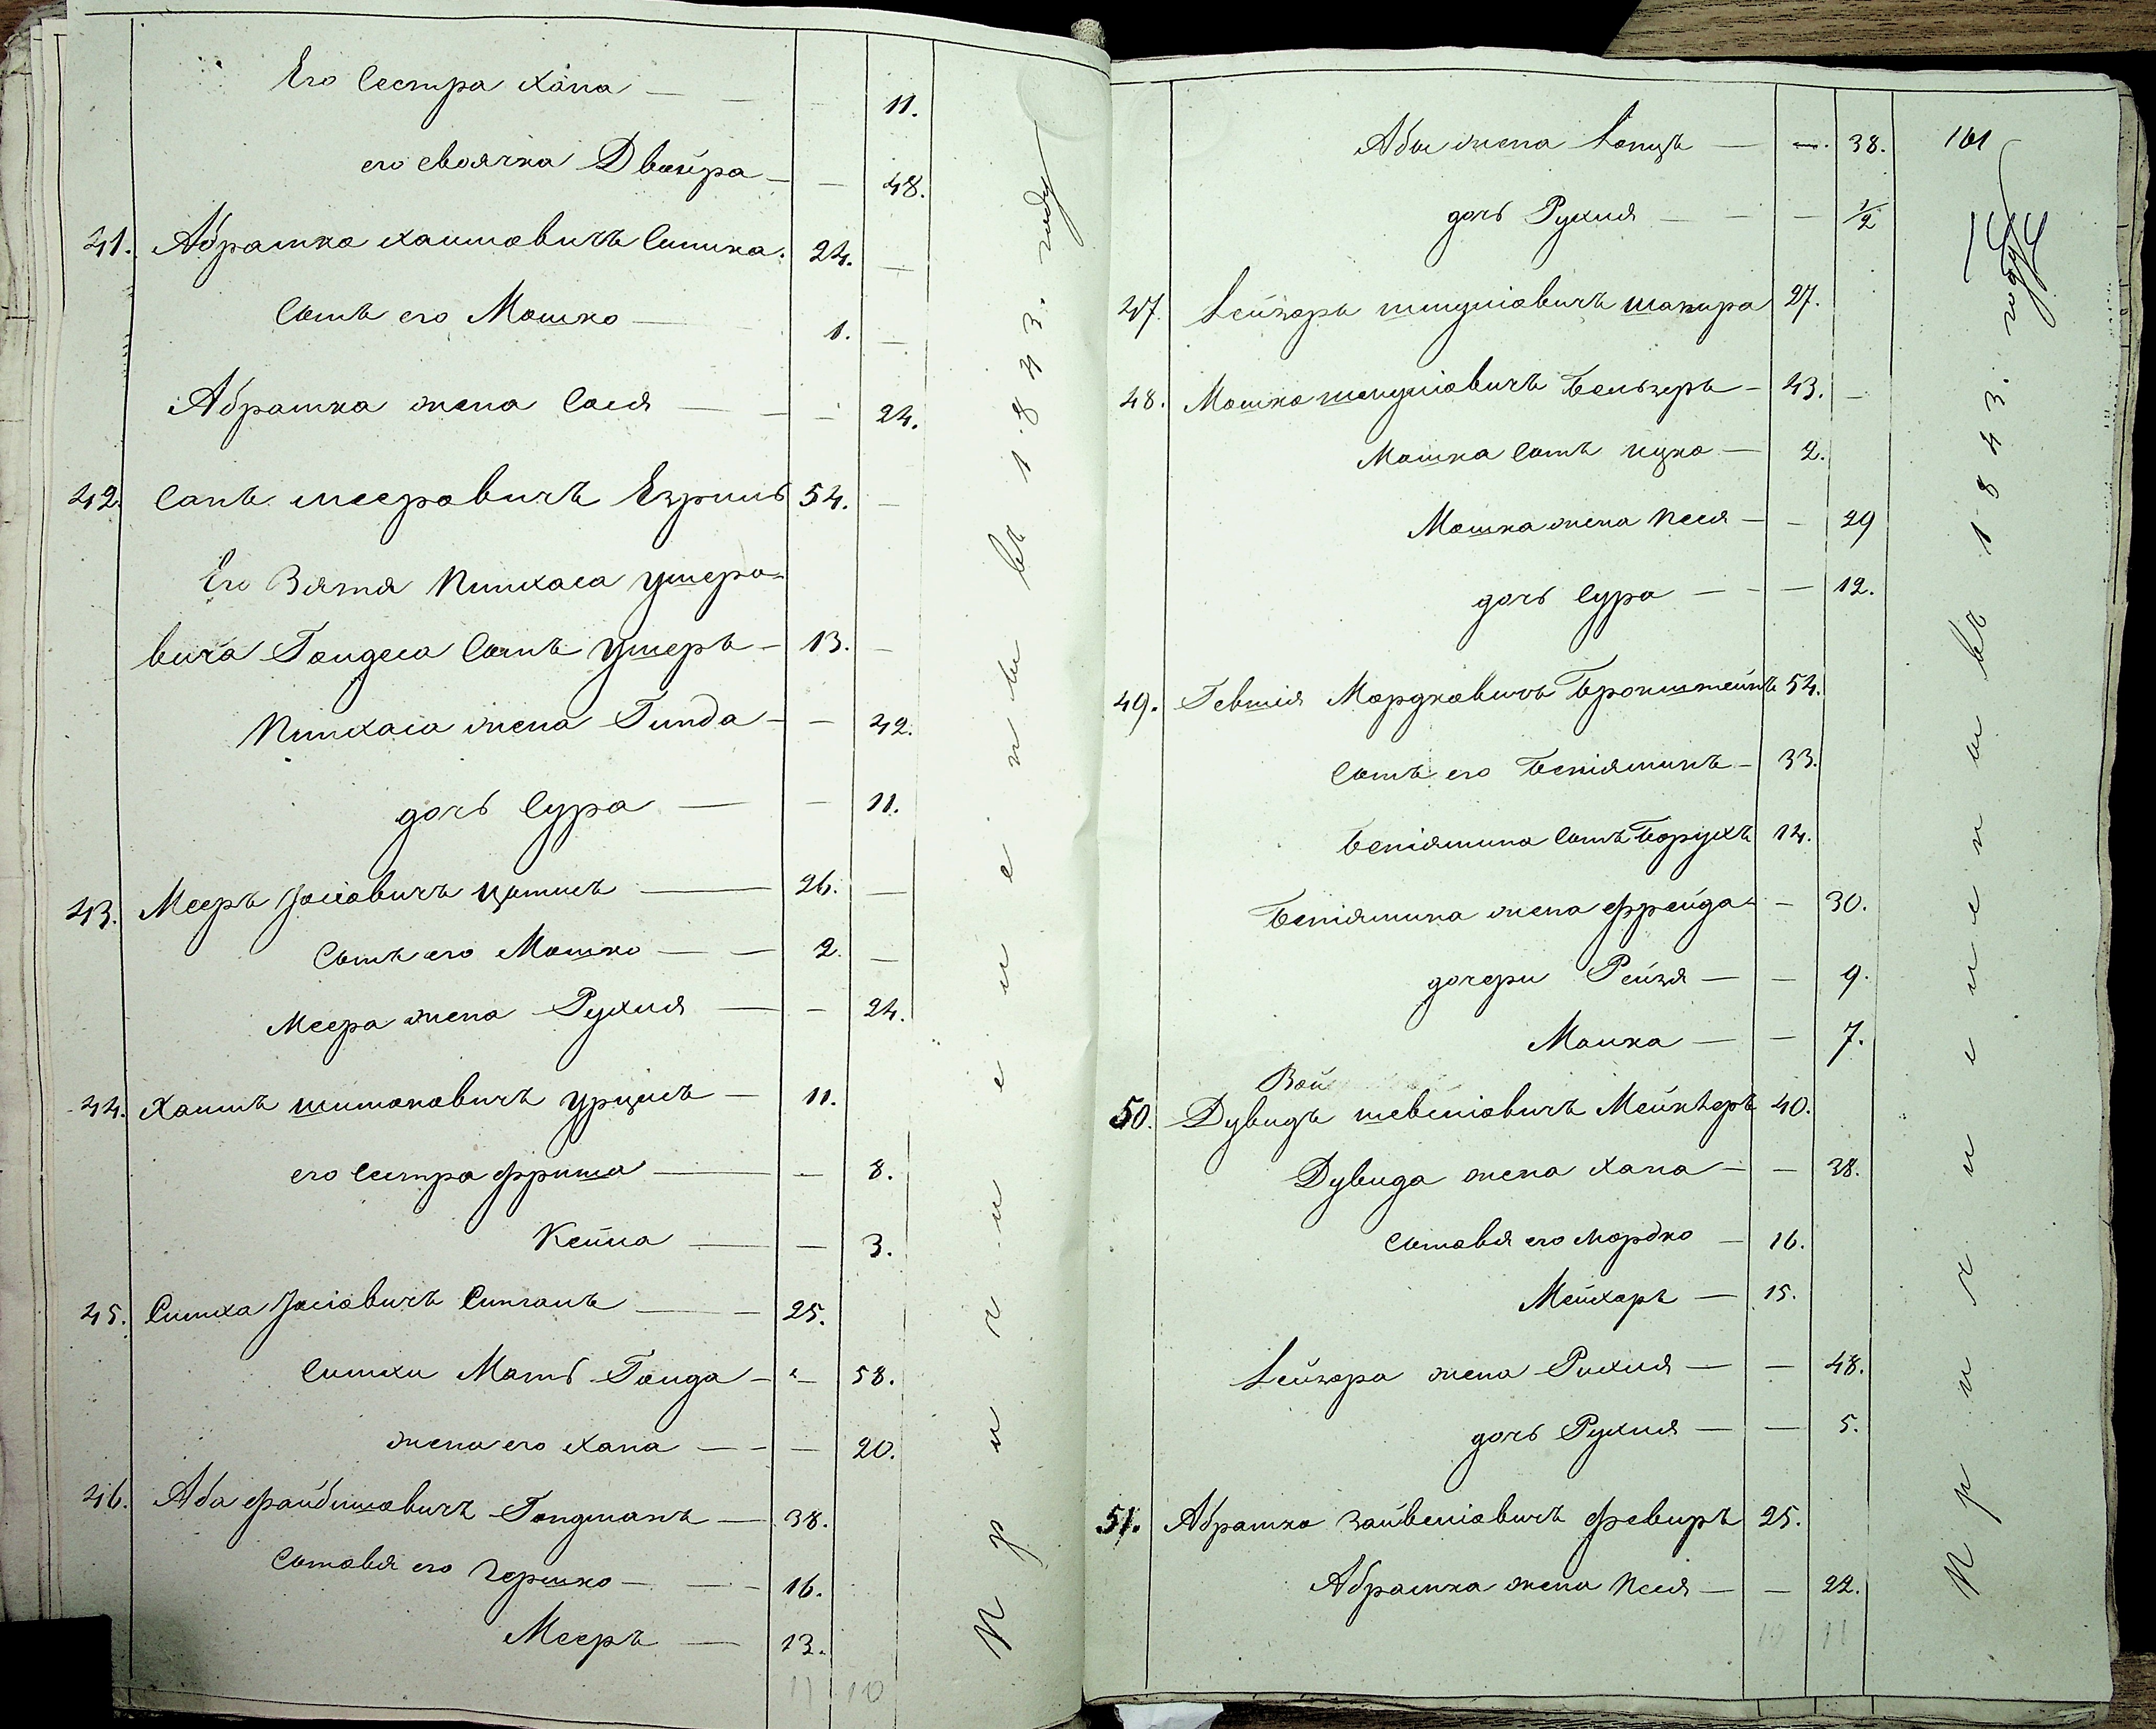 Его Сестра Хана — — — 11.
его своячка Двойра — — 48.
41. Абрамко Хаимовичъ Симка. 24. —
Сынъ его Мошко — 1. —
Абрамка жена Сося — — — 24.
42. Сапъ Мееровичъ Езриль 54. —
Его Зятя Пинхаса Ушеро-
вича Гойдеса Сынъ Ушеръ — 13. —
Пинхаса жена Гинда — — 42.
дочь Сура — — 11.
43. Мееръ Іосіовичъ — 26. —
Сынъ его Мошко — — 2. —
Меера жена Рухля — — 24.
44. Хаимъ Шимоновичъ Урциль — 11.
его Сестра Фрима — — 8.
Кейла — — 3.
45. Симха Іосіовичъ — — 25.
Симхи Мать Гойда — — 58.
жена его Хана — — — 20.
46. Аба Файбишовичъ Гойдманъ — 38.
Сыновья его Гершко — — 16.
Мееръ — 13.
11 10
Причислены въ 1843. году
161
Абы жена — — 38.
дочь Рухля — — — ½
47. Лейзоръ Шмуліовичъ Шапира 27.
48. Мошко Шмуліовичъ Бельзеръ — 43. —
Мошка Сынъ Ицко — 2.
Мошка жена Песя — — 29
дочь Сура — — — 12.
49. Мордковичъ Бронштейнъ 54.
Сынъ его Беніяминъ — 33.
Беніямина Сынъ Борухъ 14.
Беніямина жена Фрейда — — 30.
дочери Рейзя — — 9.
Малка — — 7.
50. Дувидъ Шевеліовичъ 40.
Дувида жена Хана — — 38.
Сыновья его Мордко — 16.
— 15.
Лейзора жена Рихля — — 48.
дочь Рухля — — 5.
51. Абрамко Зайвеліовичъ 25.
Абрамка жена Песя — — 22.
10 11
Причислены въ 1843. году